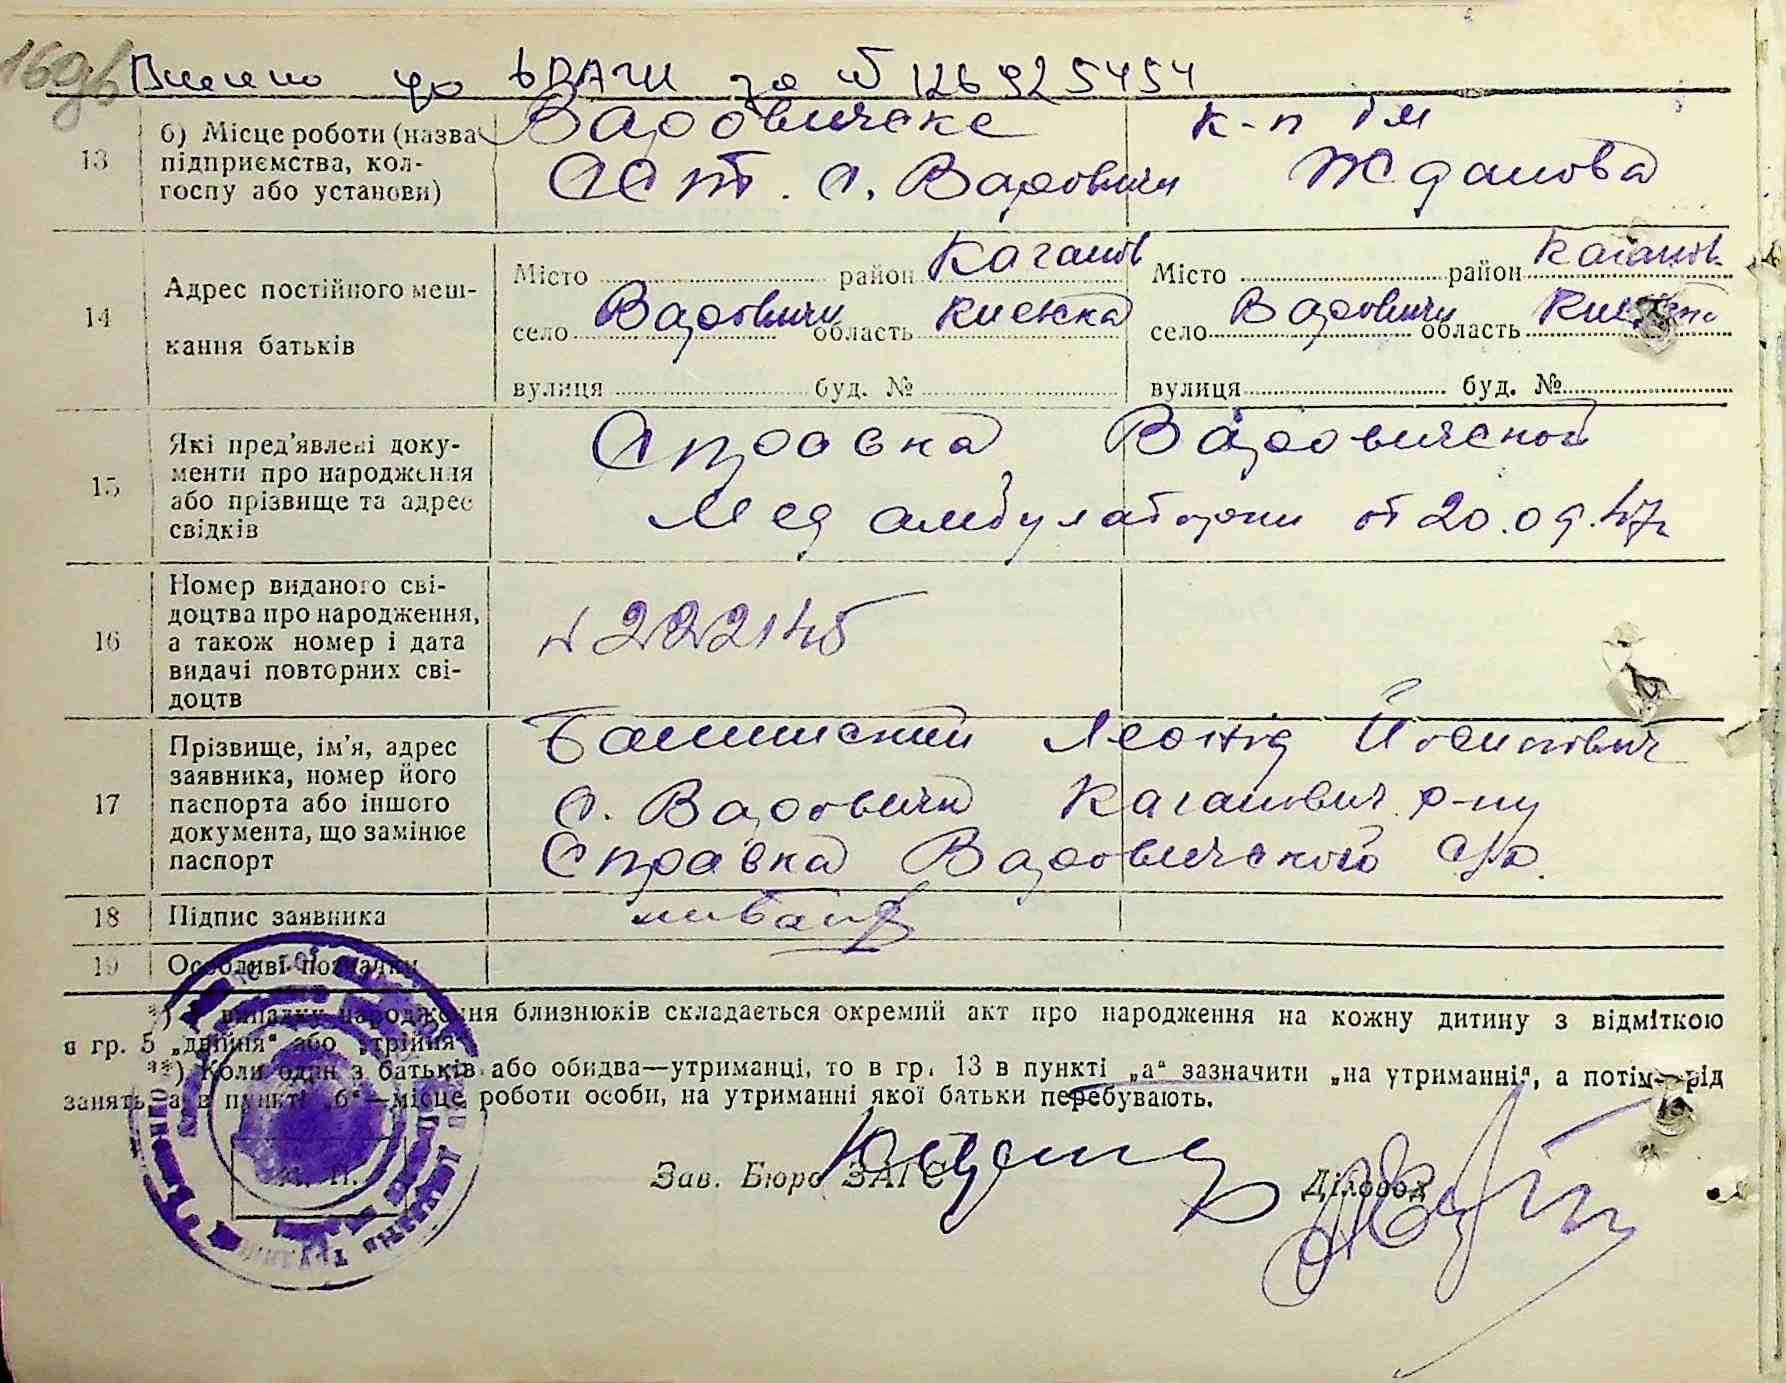 169зв
Внесено до ВРАЦИ за № 126925454
13
б) Місце роботи (назва підприємства, колгоспу або установи)
Варовичске
ССТ. с. Варовичи
к-п ім
Жданова
14
Адрес постійного мешкання батьків
Місто район Каганов
село Варовичи область Киевска
вулиця буд. №
Місто район Каганов
село Варовичи область
вулиця буд. №
15
Які пред'явлені документи про народження або прізвище та адрес свідків
Справка Варовичской
Мед амбулатории от 20.09.47г
16
Номер виданого свідоцтва про народження, а також номер і дата видачі повторних свідоцтв
№ 222145
17
Прізвище, ім'я, адрес заявника, номер його паспорта або іншого документа, що замінює паспорт
Леонід Йосипович
с. Варовичи Каганович. р-ну
Справка Варовичского с/р.
18
Підпис заявника
19
Особливі позначки
*) У випадку народження близнюків складається окремий акт про народження на кожну дитину з відміткою
в гр. 5 „двійня“ або „трійня“.
**) Коли один з батьків або обидва—утриманці, то в гр. 13 в пункті „а“ зазначити „на утриманні“, а потім рід
занять, а в пункті „б“—місце роботи особи, на утриманні якої батьки перебувають.
М. П.
Зав. Бюро ЗАГС
Діловод